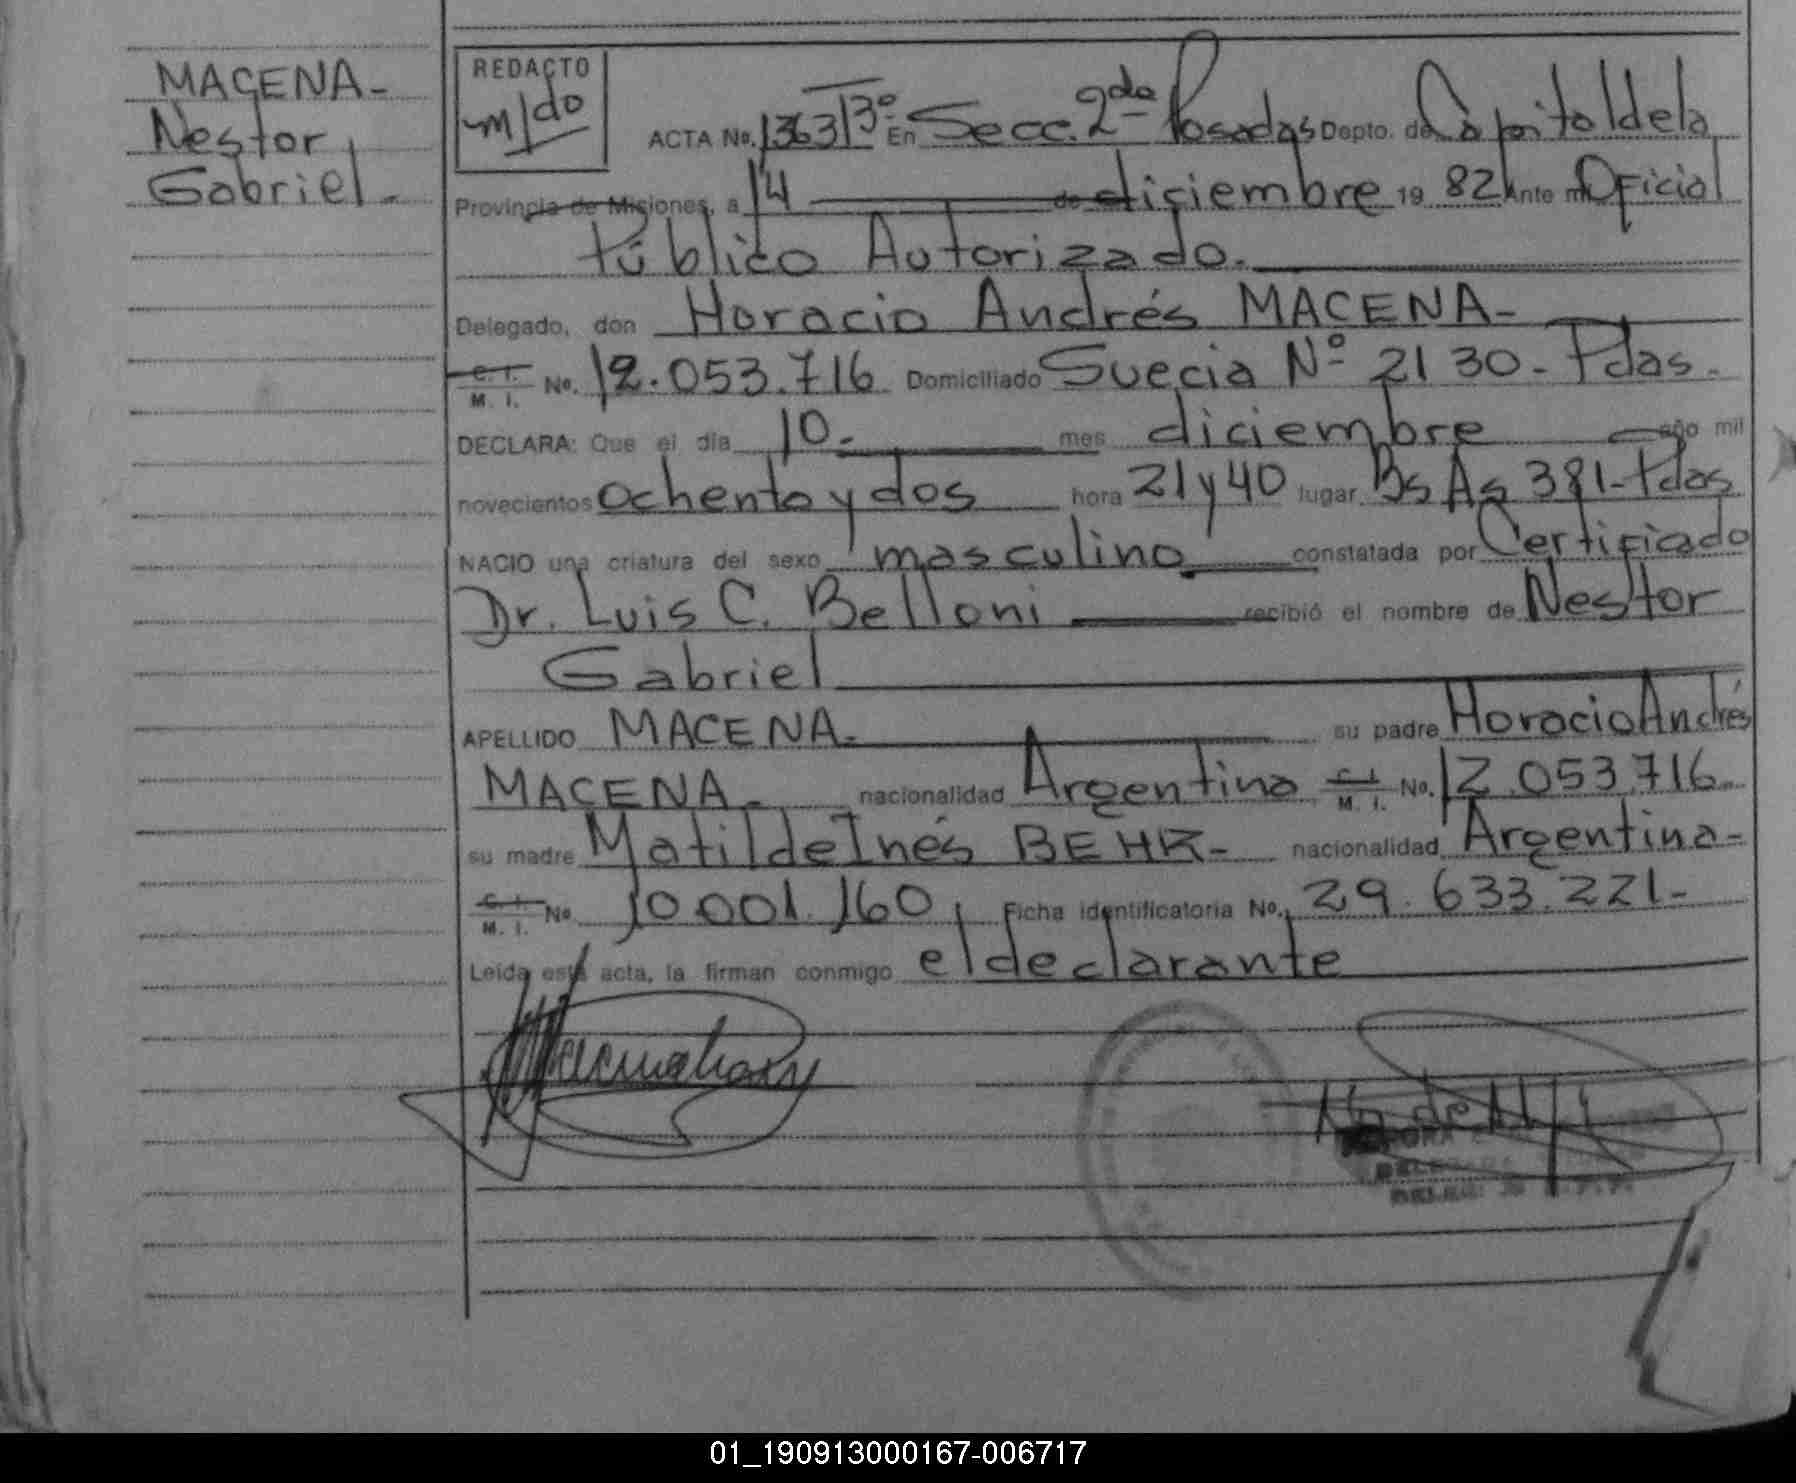 MACENA-
Nestor
Gabriel.-
REDACTO
m/do
ACTA No. 1363 T 3º En Secc. 2da Posadas Depto. de Capital de la
Provincia de Misiones, a 14 de diciembre 19 82 Ante mí Oficial
Público Autorizado.
Delegado, don Horacio Andrés MACENA-
C. I. M. I. No. 12.053.716 Domiciliado Suecia Nº 2130 - Pdas.
DECLARA: Que el día 10. mes diciembre año mil
novecientos ochenta y dos hora 21 y 40 lugar Bs As 381-Pdas
NACIO una criatura del sexo masculino constatada por Certificado
Dr. Luis C. Belloni recibió el nombre de Nestor
Gabriel
APELLIDO MACENA. su padre Horacio Andrés
MACENA - nacionalidad Argentina C. I. M. I. No. 12.053.716
su madre Matilde Inés BEHR- nacionalidad Argentina-
C. I. M. I. No. 10.001.160 Ficha identificatoria No. 29.633.221-
Leída esta acta, la firman conmigo el declarante
01_190913000167-006717